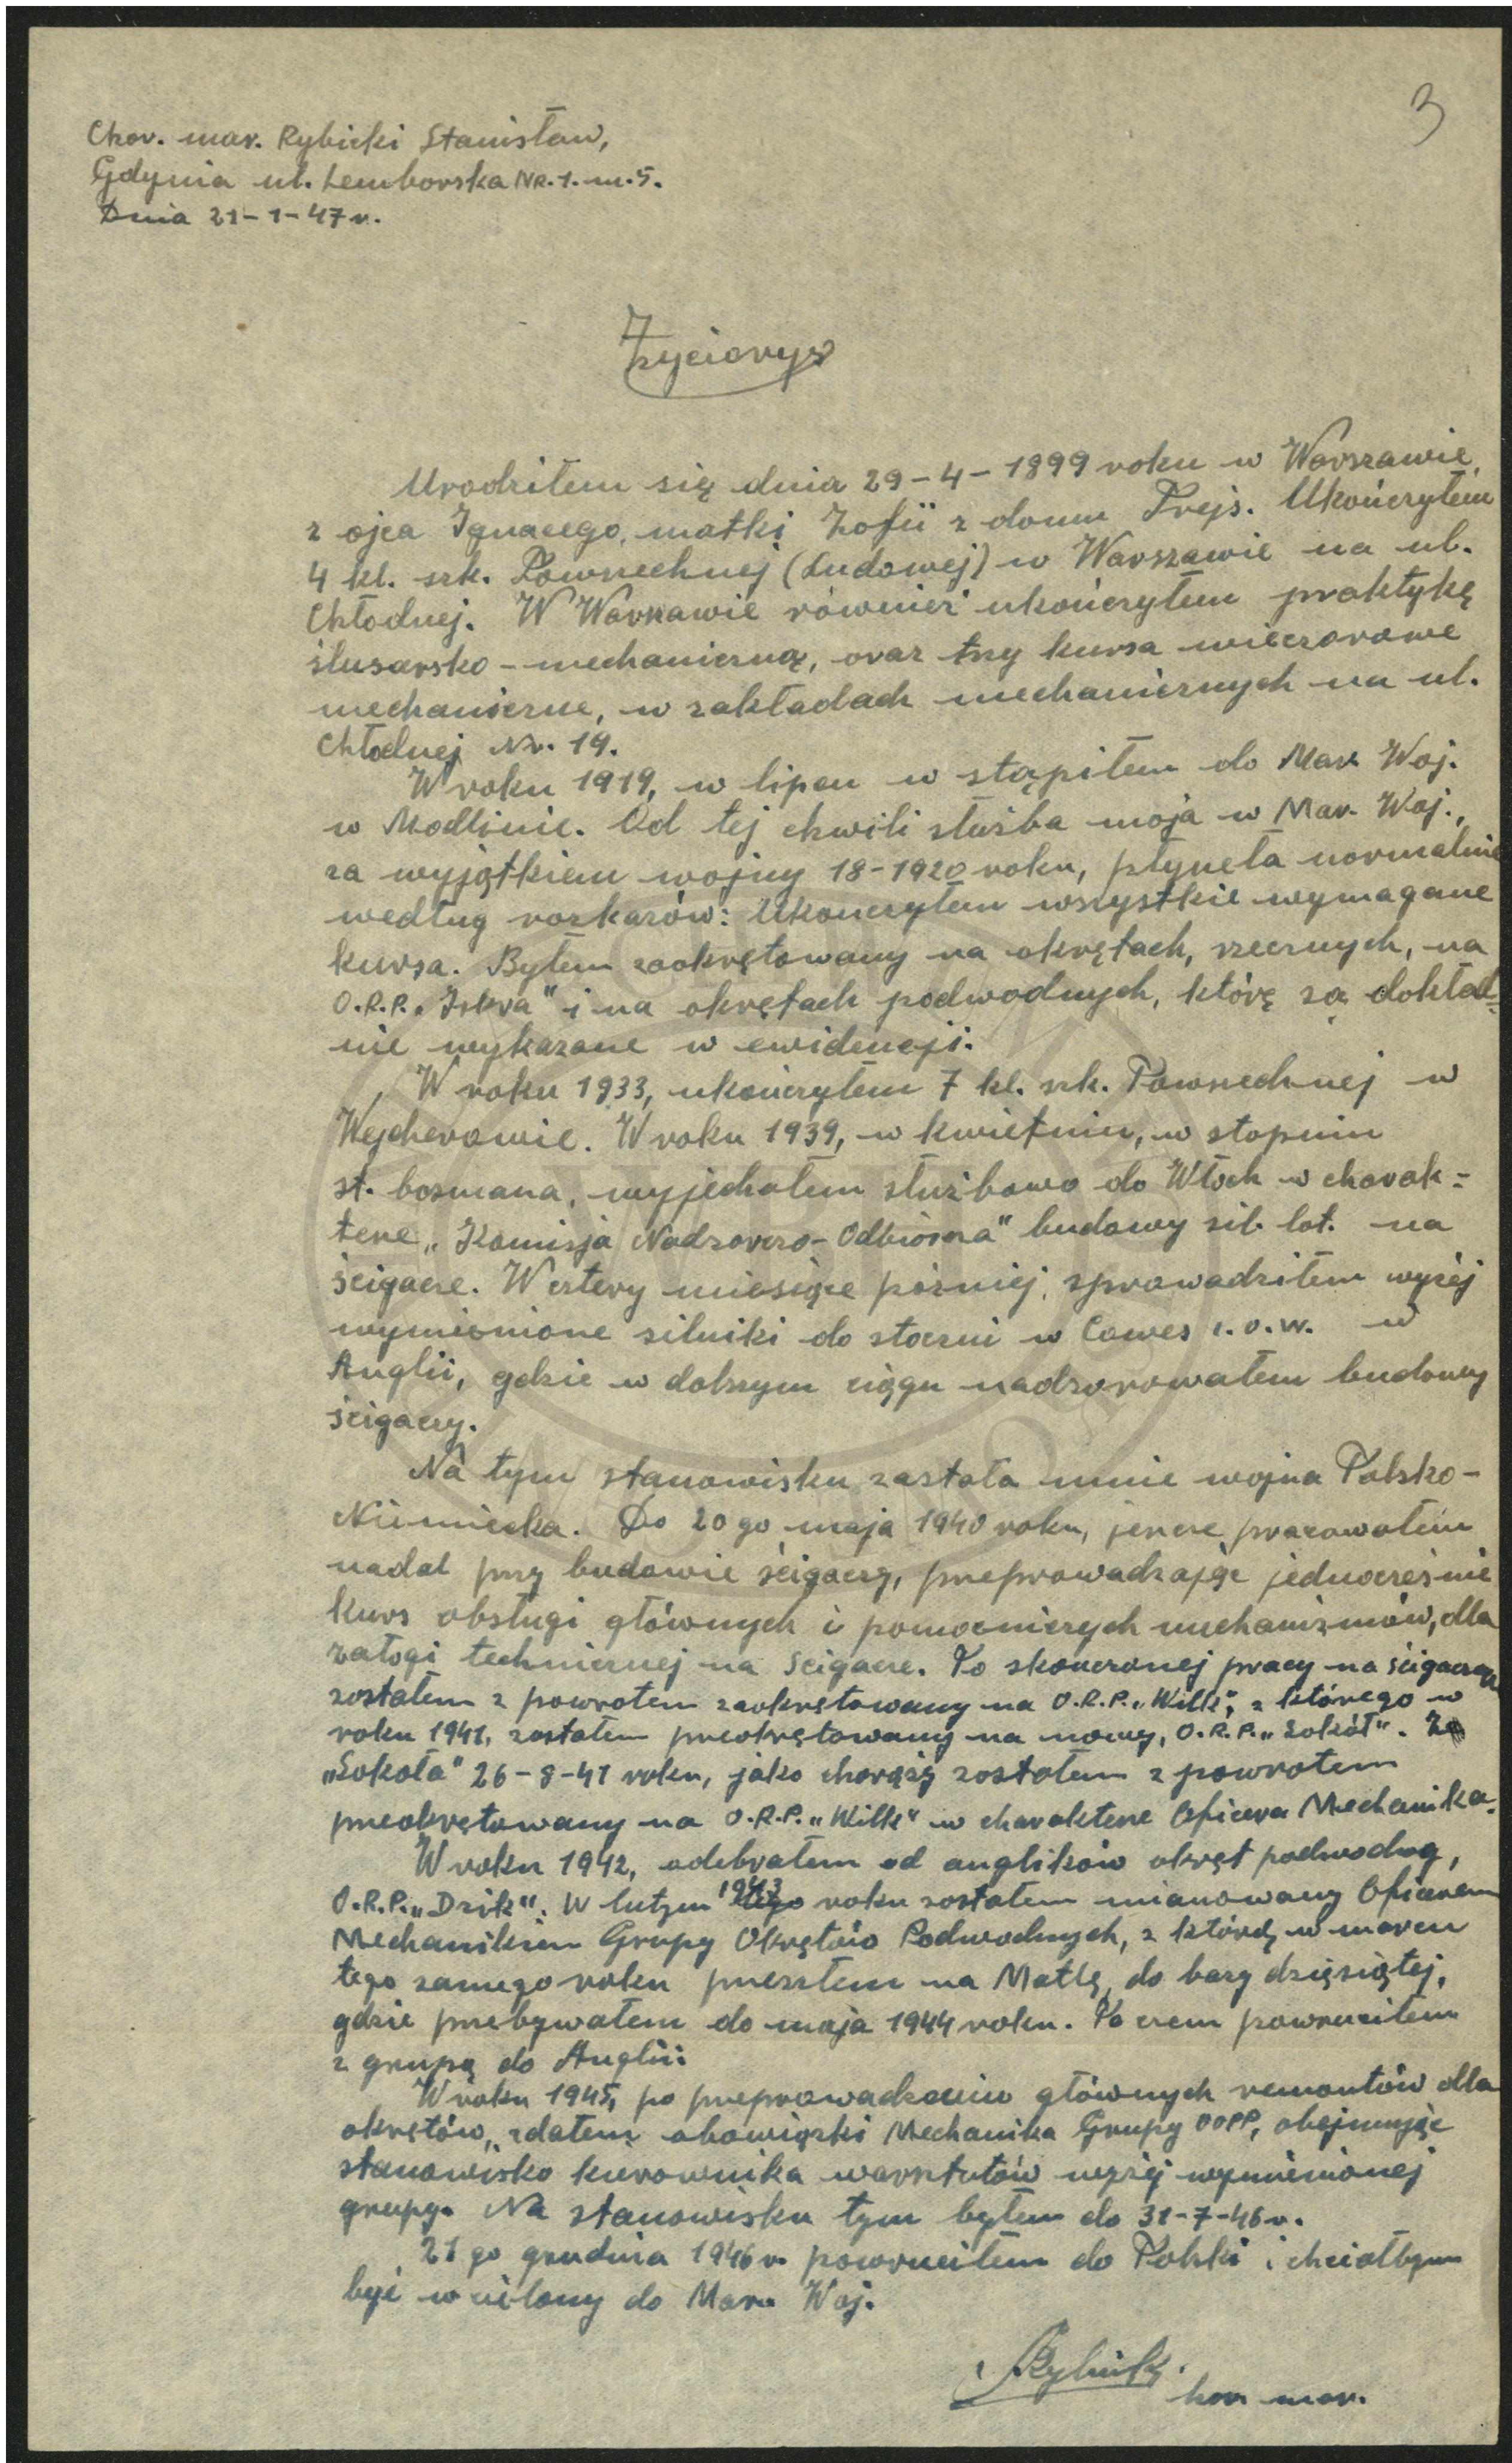 3
Chor. mar. Rybicki Stanisław,
Gdynia ul. Lemborska NR. 1. m. 5.
Dnia 21-1-47 r.
Życiorys
Urodziłem się dnia 29-4-1899 roku w Warszawie,
z ojca Ignacego, matki Zofii z domu Prejs. Ukończyłem
4 kl. szk. Powszechnej (Ludowej) w Warszawie na ul.
Chłodnej. W Warszawie również ukończyłem praktykę
ślusarsko-mechaniczną, oraz trzy kursa wieczorowe
mechaniczne, w zakładach mechanicznych na ul.
Chłodnej Nr. 19.
W roku 1919, w lipcu w stąpiłem do Mar. Woj.
w Modlinie. Od tej chwili służba moja w Mar. Woj.,
za wyjątkiem wojny 18-1920 roku, płynęła normalnie
według rozkazów: Ukończyłem wszystkie wymagane
kursa. Byłem zaokrętowany na okrętach, rzecznych, na
O.R.P. „Iskra" i na okrętach podwodnych, którę są dokład=
nie wykazane w ewidencji.
W roku 1933, ukończyłem 7 kl. szk. Powszechnej w
Wejcherowie. W roku 1939, w kwietniu, w stopniu
st. bosmana, wyjechałem służbowo do Włoch w charak=
terze „Komisja Nadzorczo-Odbiorcza" budowy sil. lot. na
ścigacze. W cztery miesiące później, sprowadziłem wyżej
wymienione silniki do stoczni w Cowes I.O.W. w
Anglii, gdzie w dalszym ciągu nadzorowałem budowy
ścigaczy.
Na tym stanowisku zastała mnie wojna Polsko-
Niemiecka. Do 20 go maja 1940 roku, jeszcze pracowałem
nadal przy budowie ścigaczy, przeprowadzając jednocześnie
kurs obsługi głównych i pomocniczych mechanizmów, dla
załogi technicznej na ścigacze. Po skończonej pracy na ścigaczach
zostałem z powrotem zaokrętowany na O.R.P. „Wilk", z którego w
roku 1941, zostałem przeokrętowany na nowy, O.R.P. „Sokół". Ze
„Sokoła" 26-8-41 roku, jako chorąży zostałem z powrotem
przeokrętowany na O.R.P. „Wilk" w charakterze Oficera Mechanika.
W roku 1942, odebrałem od anglików okręt podwodny,
O.R.P. „Dzik". W lutym 1943 roku zostałem mianowany Oficerem
Mechanikiem Grupy Okrętów Podwodnych, z którą w marcu
tego samego roku przeszłem na Maltę, do bazy dzięsiątej,
gdzie przebywałem do maja 1944 roku. Po czem powruciłem
z grupą do Anglii.
W roku 1945, po przeprowadzeniu głównych remontów dla
okrętów, zdałem obowiązki Mechanika Grupy OOPP, obejmując
stanowisko kierownika warsztatów wyżej wymienionej
grupy. Na stanowisku tym byłem do 31-7-46 r.
21 go grudnia 1946 r. powruciłem do Polski i chciałbym
być w cielony do Mar. Woj.
Rybicki.
chor. mar.